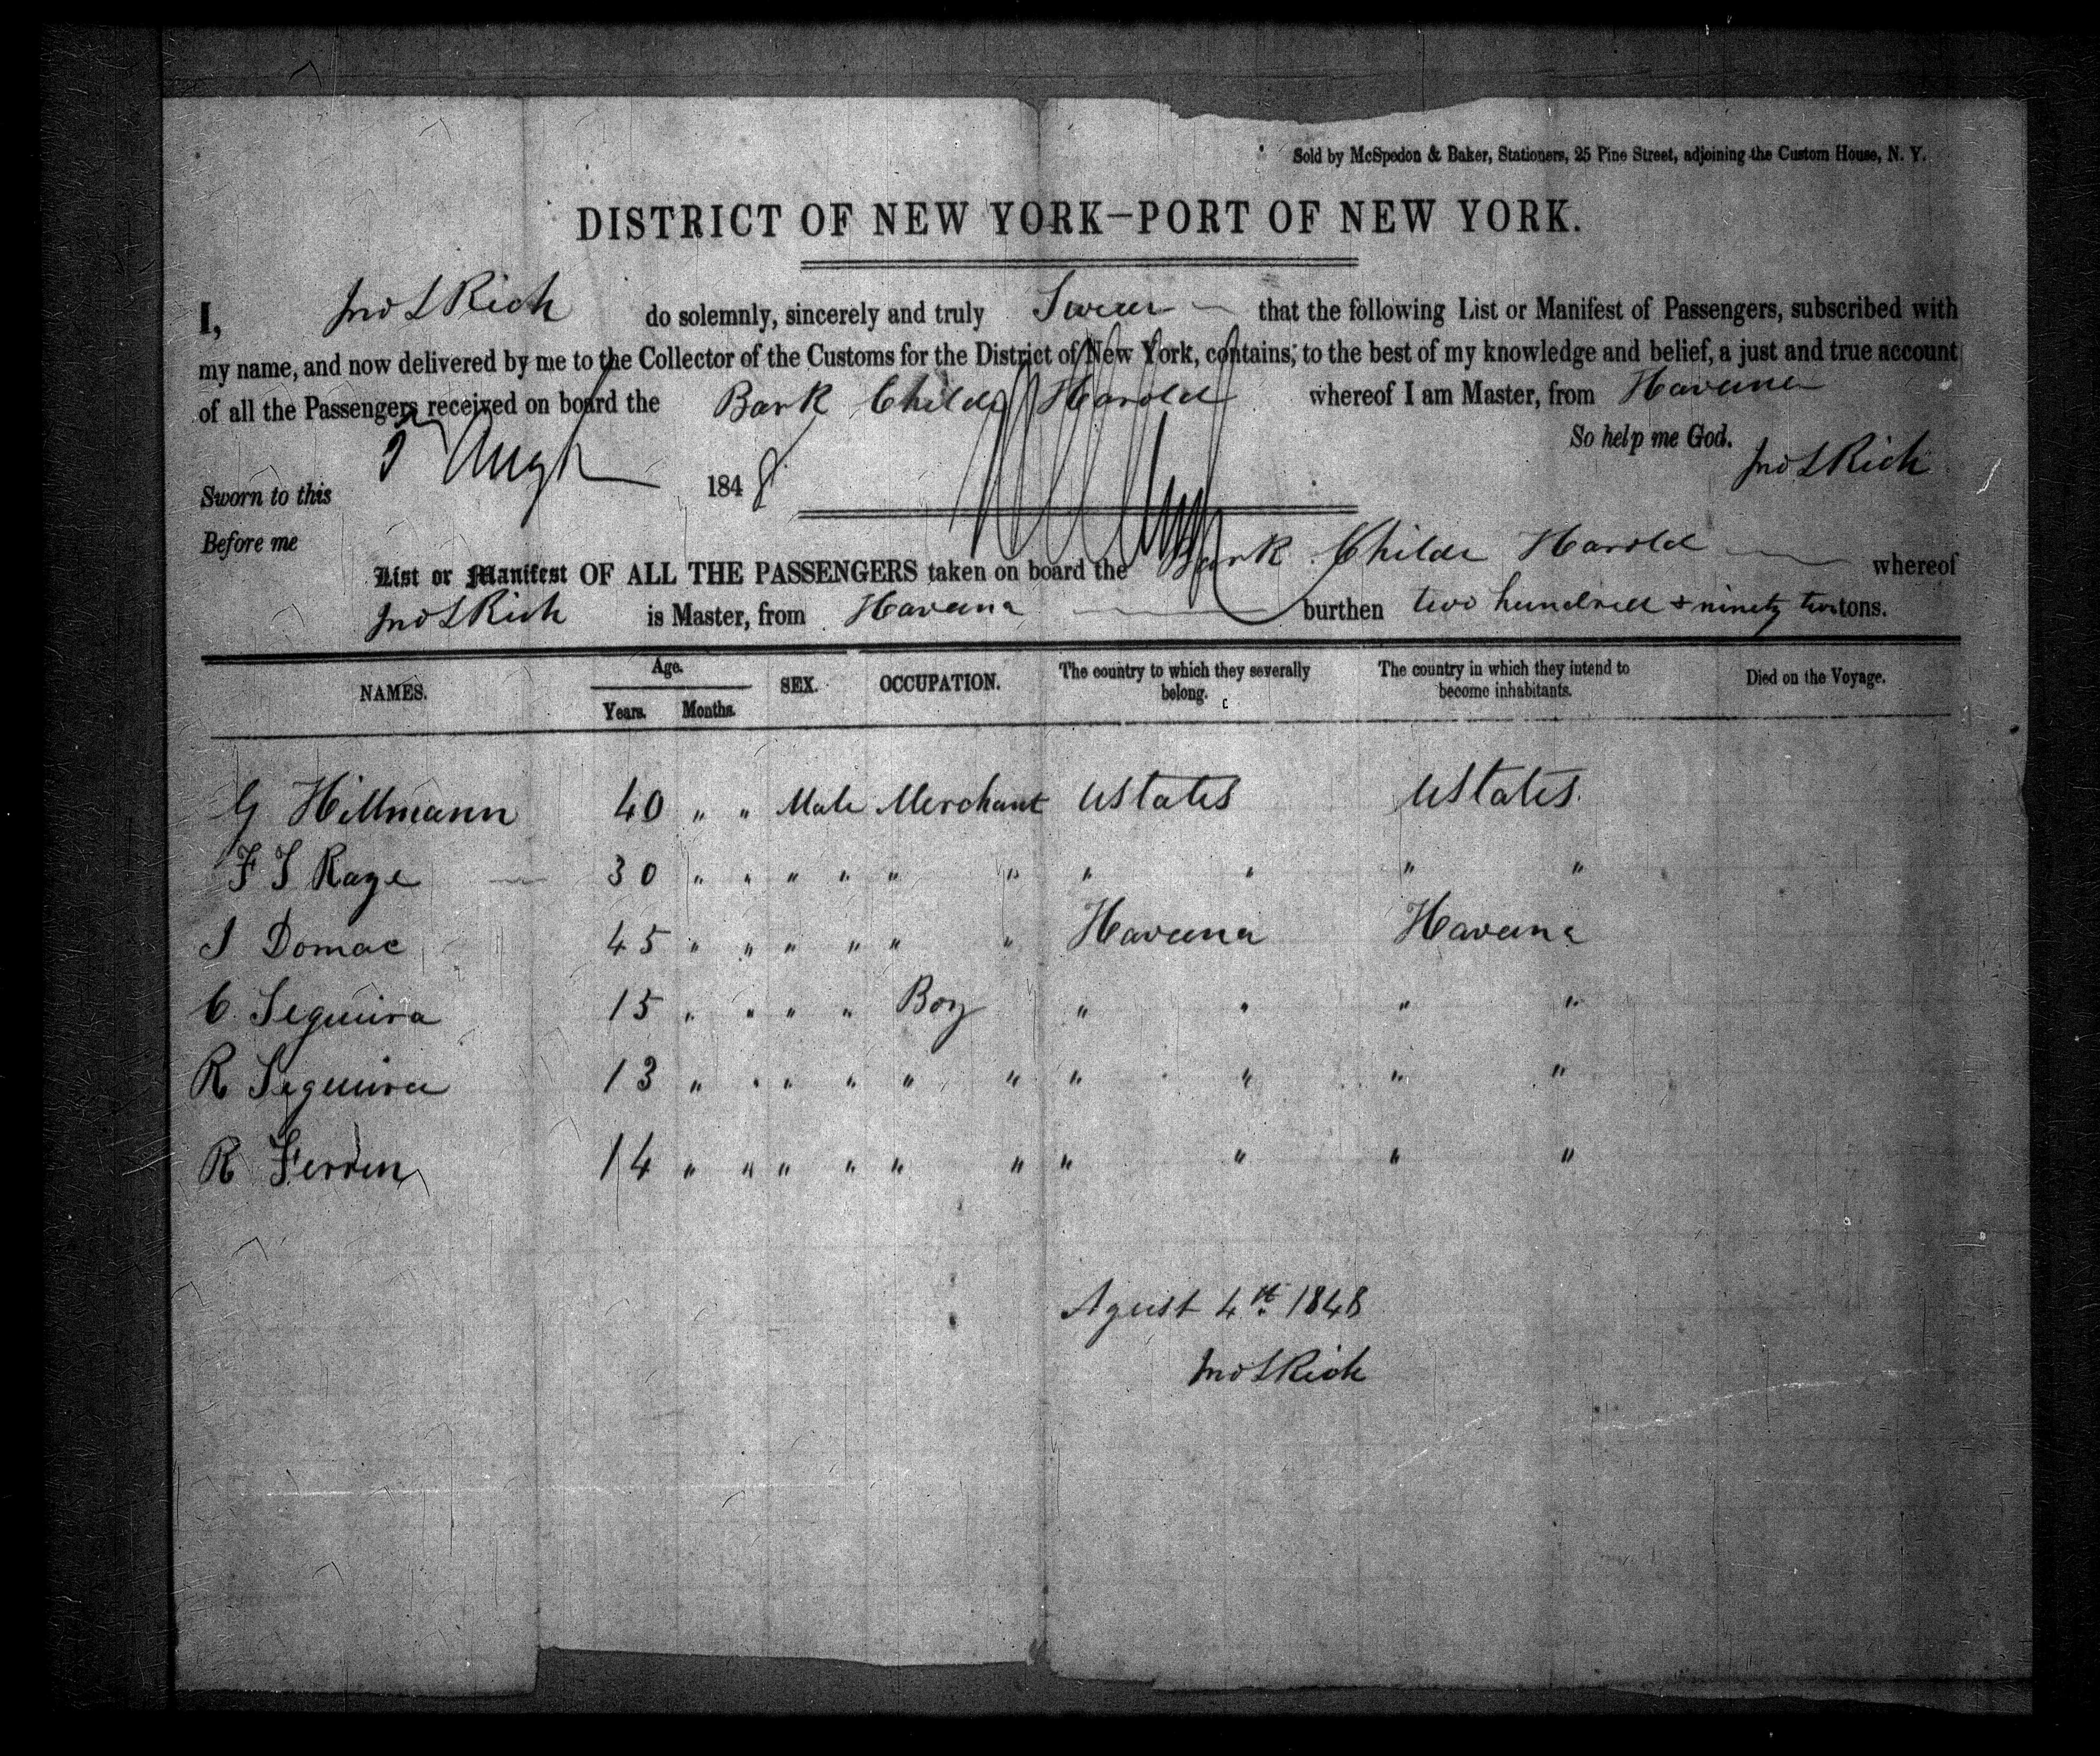 Sold by McSpedon & Baker, Stationers, 25 Pine Street, adjoining the Custom House, N. Y.
DISTRICT OF NEW YORK—PORT OF NEW YORK.
I, Jno L Rich do solemnly, sincerely and truly Swear that the following List or Manifest of Passengers, subscribed with
my name, and now delivered by me to the Collector of the Customs for the District of New York, contains, to the best of my knowledge and belief, a just and true account
of all the Passengers received on board the Bark Childe Harold whereof I am Master, from Havana
So help me God.
Jno L Rich
Sworn to this Augt 1848
Before me
List or Manifest OF ALL THE PASSENGERS taken on board the Bark Childe Harold whereof
Jno L Rich is Master, from Havana burthen two hundred & ninety two tons.
NAMES. Age. Years. Months. SEX. OCCUPATION. The country to which they severally belong. The country in which they intend to become inhabitants. Died on the Voyage.
G Hillmann 40 " " Male Merchant UStates UStates.
F S Raye 30 " " " " " " " " " "
J Domac 45 " " " " " " Havana Havana
C. Sequira 15 " " " " Boy " " " "
R Sequira 13 " " " " " " " " " "
R Ferren 14 " " " " " " " " " "
Agust 4th 1848
Jno L Rich